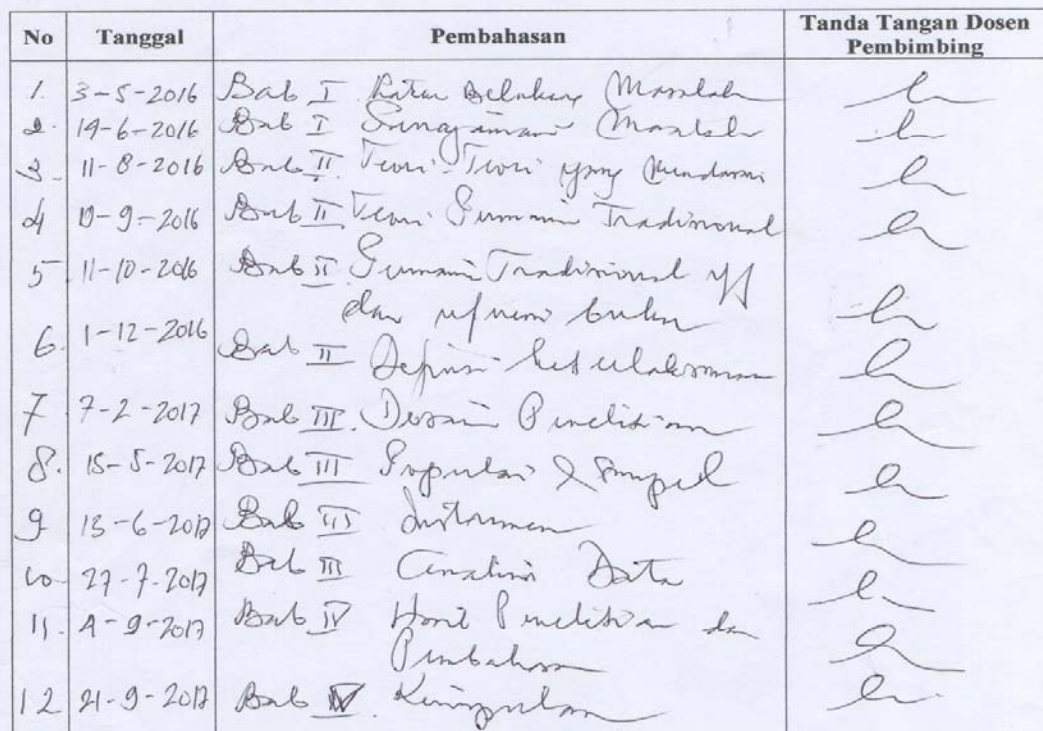 No Tanggal Pembahasan Tanda Tangan Dosen Pembimbing
1. 3-5-2016 Bab I Latar Belakang Masalah
2. 14-6-2016 Bab I Masalah
3. 11-8-2016 Bab II Teori-Teori yang Mendasari
4 19-9-2016 Bab II Teori Permainan Tradisional
5 11-10-2016 Bab II Permainan Tradisional
dan buku
6. 1-12-2016 Bab II Definisi
7 7-2-2017 Bab III. Desain Penelitian
8. 15-5-2017 Bab III Populasi & Sampel
9 13-6-2017 Bab III Instrumen
10 27-7-2017 Bab III Analisis Data
11. 4-9-2017 Bab IV Hasil Penelitian dan
Pembahasan
12 21-9-2017 Bab V Kesimpulan